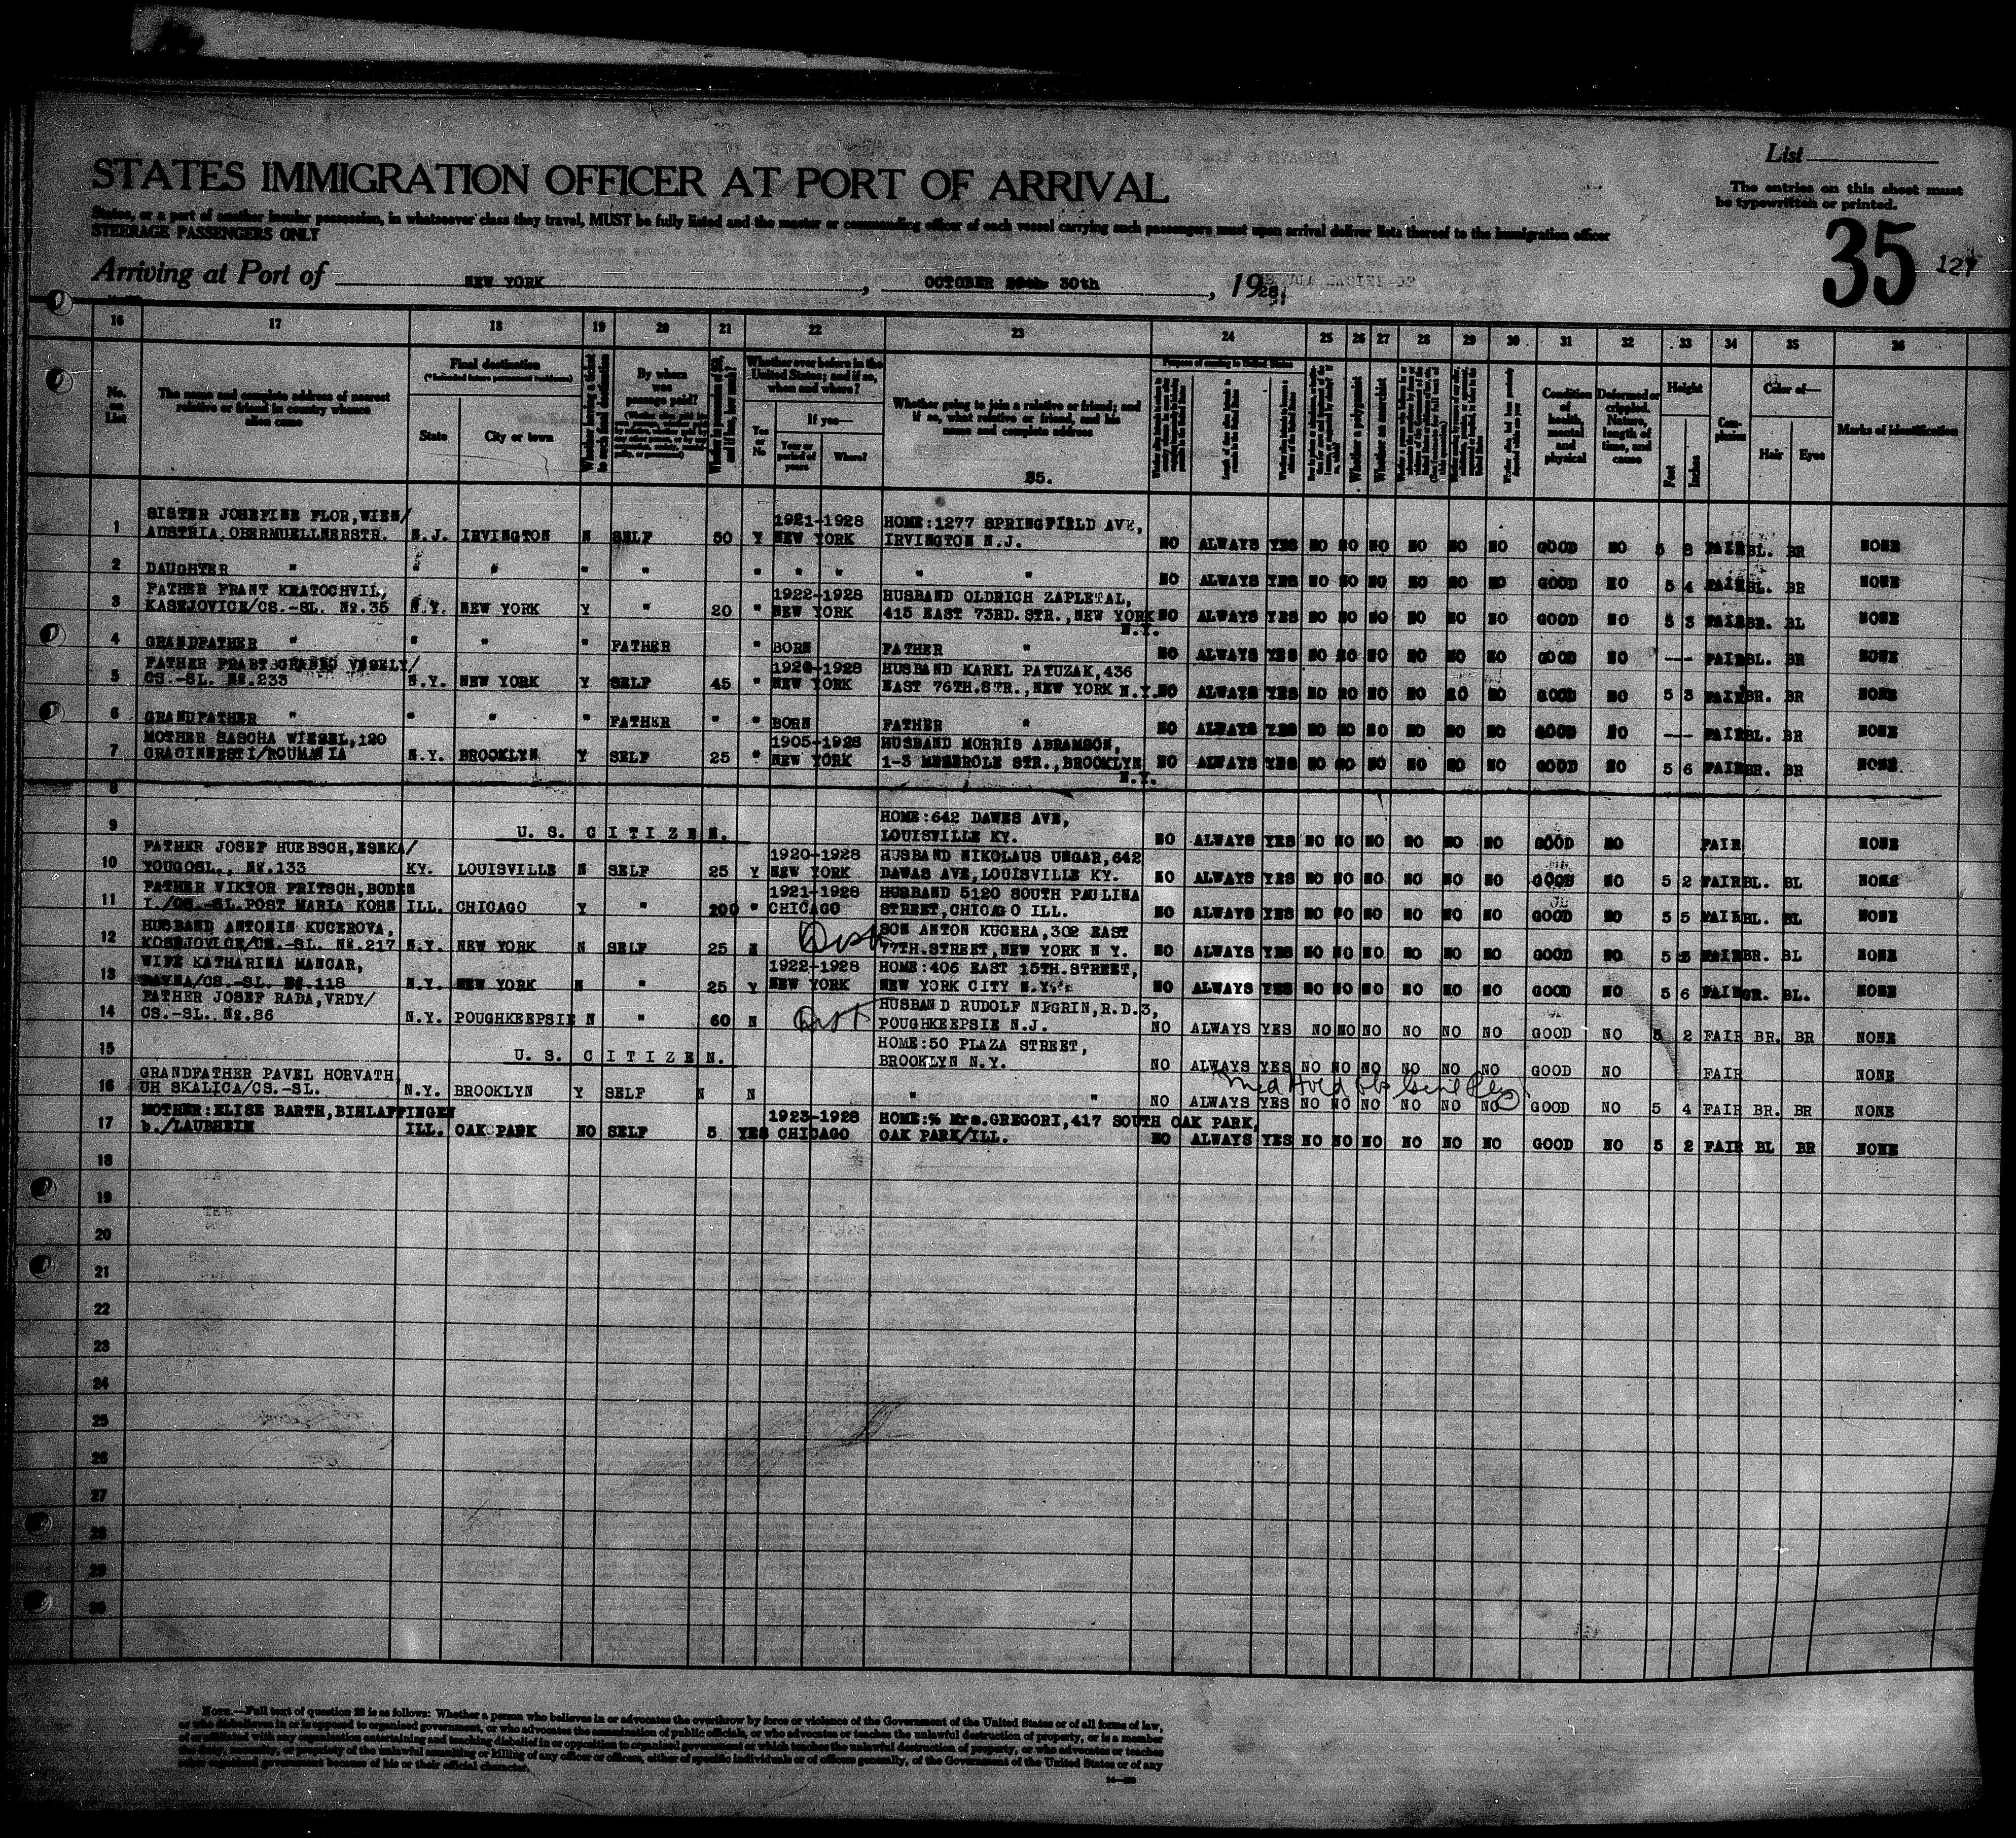 List
STATES IMMIGRATION OFFICER AT PORT OF ARRIVAL
The entries on this sheet must
be typewritten or printed.
States, or a part of another insular possession, in whatsoever class they travel, MUST be fully listed and the master or commanding officer of each vessel carrying such passengers must upon arrival deliver lists thereof to the immigration officer
STEERAGE PASSENGERS ONLY
35 127
Arriving at Port of NEW YORK, OCTOBER 30th, 1928
16 17 18 19 20 21 22 23 24 25 26 27 28 29 30 31 32 33 34 35 36
No. on List
The name and complete address of nearest relative or friend in country whence alien came
Final destination
(*Intended future permanent residence)
State
City or town
Whether having a ticket to such final destination
By whom was passage paid?
Whether ever before in the United States; and if so, when and where?
Yes or No
If yes—
Year or period of years
Where?
Whether going to join a relative or friend; and if so, what relative or friend, and his name and complete address
35.
Purpose of coming to United States
Whether a polygamist
Whether an anarchist
Condition of health, mental and physical
Deformed or crippled. Nature, length of time, and cause
Height
Feet
Inches
Complexion
Color of—
Hair
Eyes
Marks of identification
1 SISTER JOSEFINE FLOR, WIEN/
AUSTRIA, OBERMUELLNERSTR. N.J. IRVINGTON N SELF 50 Y 1921-1928 NEW YORK HOME:1277 SPRINGFIELD AVE, IRVINGTON N.J. NO ALWAYS YES NO NO NO NO NO NO GOOD NO 5 8 FAIR BL. BR NONE
2 DAUGHTER " " " " " " " " " " " NO ALWAYS YES NO NO NO NO NO NO GOOD NO 5 4 FAIR BL. BR NONE
3 FATHER FRANT KRATOCHVIL,
KASEJOVICE/CS.-SL. №.35 N.Y. NEW YORK Y " 20 " 1922-1928 NEW YORK HUSBAND OLDRICH ZAPLETAL, 415 EAST 73RD. STR., NEW YORK N.Y. NO ALWAYS YES NO NO NO NO NO NO GOOD NO 5 3 FAIR BR. BL NONE
4 GRANDFATHER " " " " FATHER " BORN FATHER " NO ALWAYS YES NO NO NO NO NO NO GOOD NO --- FAIR BL. BR NONE
5 FATHER VESELY/
CS.-SL. №.233 N.Y. NEW YORK Y SELF 45 " 1920-1928 NEW YORK HUSBAND KAREL PATUZAK, 436 EAST 76TH.STR., NEW YORK N.Y. NO ALWAYS YES NO NO NO NO NO NO GOOD NO 5 3 FAIR BR. BR NONE
6 GRANDFATHER " " " " FATHER " " BORN FATHER " NO ALWAYS YES NO NO NO NO NO NO GOOD NO --- FAIR BL. BR NONE
7 MOTHER SASCHA WIESEL, 120
GRACINNESTI/ROUMANIA N.Y. BROOKLYN Y SELF 25 " 1905-1928 NEW YORK HUSBAND MORRIS ABRAMSON, 1-3 MESEROLE STR., BROOKLYN N.Y. NO ALWAYS YES NO NO NO NO NO NO GOOD NO 5 6 FAIR BR. BR NONE
8
9 U. S. CITIZEN. HOME:642 DAWES AVE, LOUISVILLE KY. NO ALWAYS YES NO NO NO NO NO NO GOOD NO FAIR NONE
10 FATHER JOSEF HUEBSCH, ESEKA/
YOUGOSL., №.133 KY. LOUISVILLE N SELF 25 Y 1920-1928 NEW YORK HUSBAND NIKOLAUS UNGAR, 642 DAWAS AVE, LOUISVILLE KY. NO ALWAYS YES NO NO NO NO NO NO GOOD NO 5 2 FAIR BL. BL NONE
11 FATHER VIKTOR FRITSCH, BODEN
I./CS.-SL.POST MARIA KOHN ILL. CHICAGO Y " 200 " 1921-1928 CHICAGO HUSBAND 5120 SOUTH PAULINA STREET, CHICAGO ILL. NO ALWAYS YES NO NO NO NO NO NO GOOD NO 5 5 FAIR BL. BL NONE
12 HUSBAND ANTONIN KUCEROVA,
KOSEJOVICE/CS.-SL. №.217 N.Y. NEW YORK N SELF 25 N SON ANTON KUCERA, 302 EAST 77TH.STREET, NEW YORK N Y. NO ALWAYS YES NO NO NO NO NO NO GOOD NO 5 5 FAIR BR. BL NONE
13 WIFE KATHARINA MANGAR,
/CS.-SL. №.118 N.Y. NEW YORK N " 25 Y 1922-1928 NEW YORK HOME:405 EAST 15TH.STREET, NEW YORK CITY N.Y. NO ALWAYS YES NO NO NO NO NO NO GOOD NO 5 6 FAIR GR. BL. NONE
14 FATHER JOSEF RADA, VRDY/
CS.-SL. №.86 N.Y. POUGHKEEPSIE N " 60 N HUSBAND RUDOLF NEGRIN, R.D.3, POUGHKEEPSIE N.J. NO ALWAYS YES NO NO NO NO NO NO GOOD NO 5 2 FAIR BR. BR NONE
15 U. S. CITIZEN. HOME:50 PLAZA STREET, BROOKLYN N.Y. NO ALWAYS YES NO NO NO NO NO NO GOOD NO FAIR NONE
16 GRANDFATHER PAVEL HORVATH
UH SKALICA/CS.-SL. N.Y. BROOKLYN Y SELF N N " " NO ALWAYS YES NO NO NO NO NO NO GOOD NO 5 4 FAIR BR. BR NONE
Med Hold
17 MOTHER:ELISE BARTH, BIHLAFFINGEN
b./LAUBHEIM ILL. OAK PARK NO SELF 5 YES 1923-1928 CHICAGO HOME:% Mrs.GREGORI, 417 SOUTH OAK PARK, OAK PARK/ILL. NO ALWAYS YES NO NO NO NO NO NO GOOD NO 5 2 FAIR BL BR NONE
18
19
20
21
22
23
24
25
26
27
28
29
30
NOTE.—Full text of question 28 is as follows: Whether a person who believes in or advocates the overthrow by force or violence of the Government of the United States or of all forms of law,
or who disbelieves in or is opposed to organized government, or who advocates the assassination of public officials, or who advocates or teaches the unlawful destruction of property, or is a member
of or affiliated with any organization entertaining and teaching disbelief in or opposition to organized government or which teaches the unlawful destruction of property, or who advocates or teaches
the duty, necessity, or propriety of the unlawful assaulting or killing of any officer or officers, either of specific individuals or of officers generally, of the Government of the United States or of any
other organized government because of his or their official character.